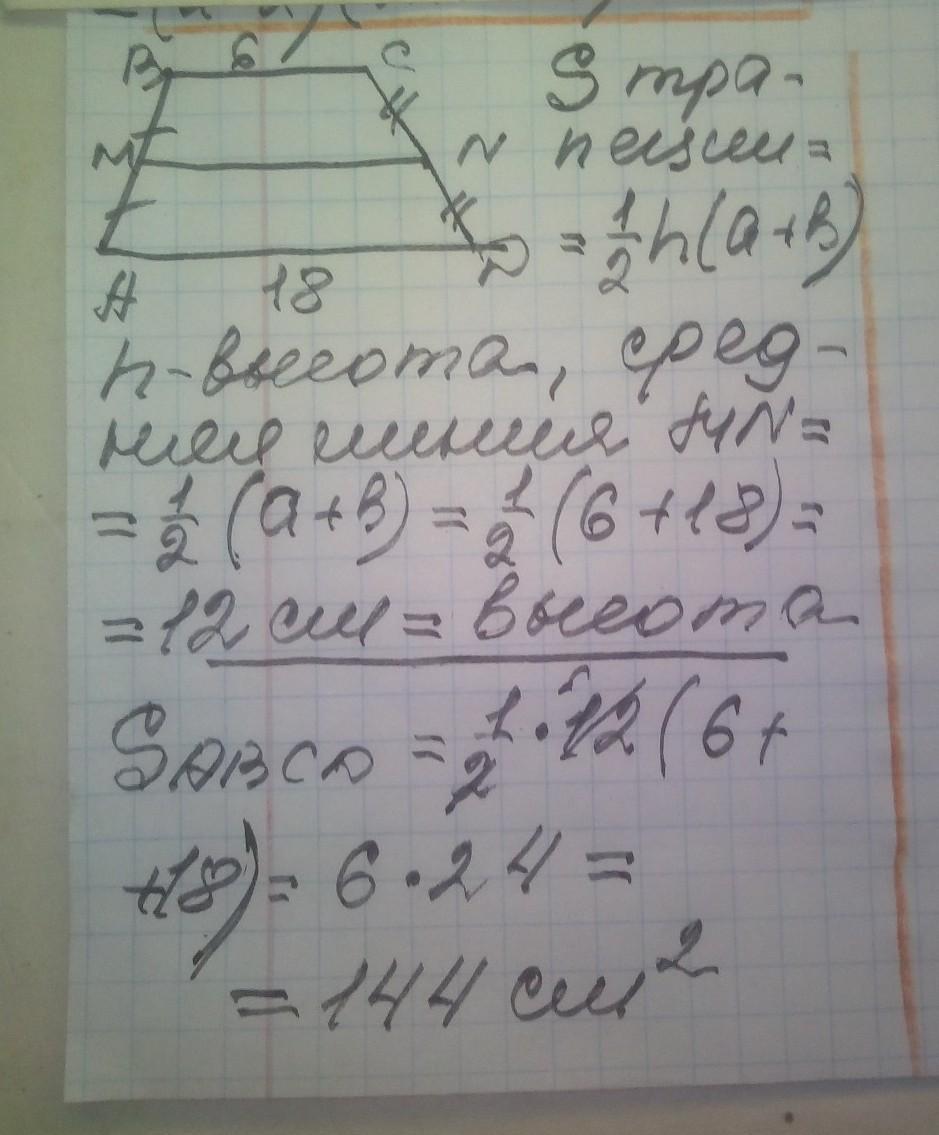 B 6 C
S тра-
M N пеции =
= 1/2 h(a+b)
A 18 D
h-высота, сред-
няя линия MN=
= 1/2 (a+b) = 1/2 (6+18) =
= 12 см = высота
SABCD = 1/2 · 12 (6+
+18) = 6 · 24 =
= 144 см²